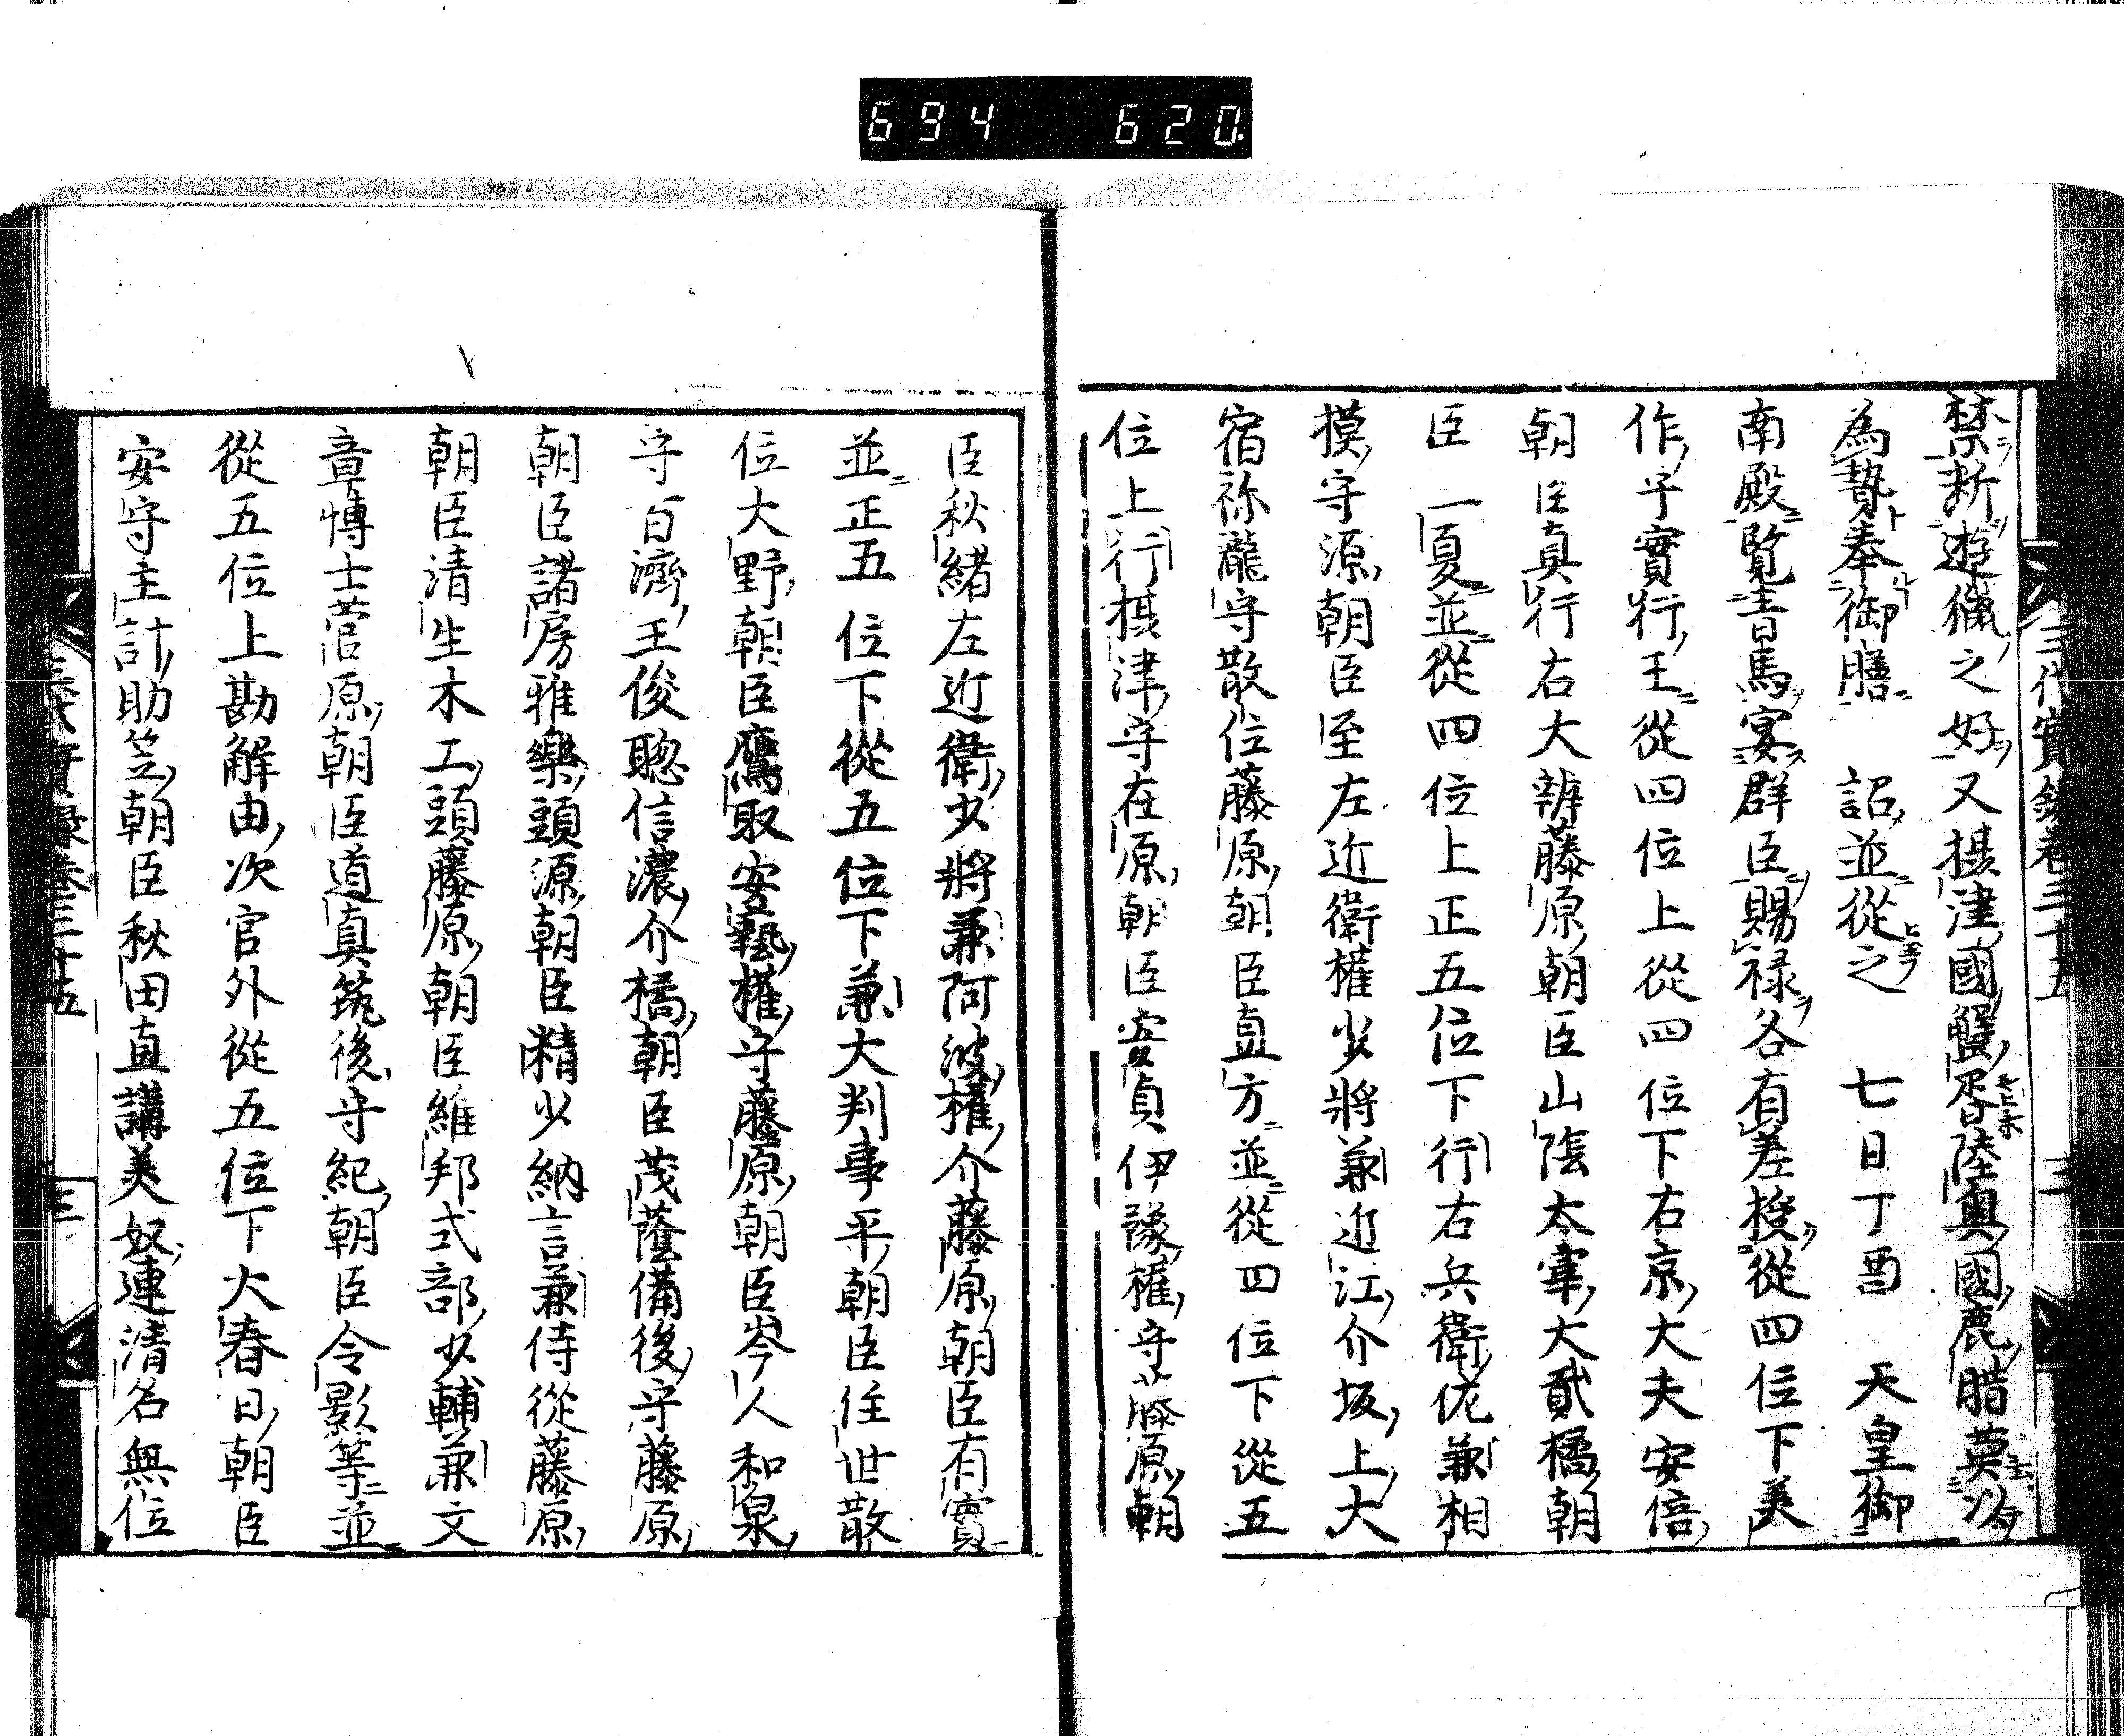 694 620
禁斷遊獵之好又摂津國蟹胥陸奥國鹿腊莫以
為贄奉御膳 詔並從之 七日丁酉 天皇御
南殿覧青馬宴群臣賜禄各有差授從四位下美
作守實行王從四位上從四位下右京大夫安倍
朝臣真行右大辨藤原朝臣山陰太宰大貳橘朝
臣 一夏並從四位上正五位下行右兵衛佐兼相
摸守源朝臣至左近衛權少將兼近江介坂上大
宿祢瀧守散位藤原朝臣直方並從四位下從五
位上行摂津守在原朝臣安貞伊豫權守藤原朝
臣秋緒左近衛少將兼阿波權介藤原朝臣有實
並正五位下從五位下兼大判事平朝臣住世散
位大野朝臣鷹取安藝權守藤原朝臣岑人和泉
守百濟王俊聰信濃介橘朝臣茂蔭備後守藤原
朝臣諸房雅樂頭源朝臣精少納言兼侍從藤原
朝臣清生木工頭藤原朝臣維邦式部少輔兼文
章博士菅原朝臣道真筑後守紀朝臣令影等並
從五位上勘解由次官外從五位下大春日朝臣
安守主計助笠朝臣秋田直講美奴連清名無位
三代實録巻三十五 三